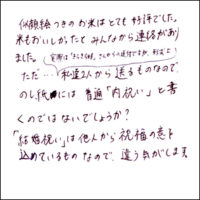 似顔絵つきのお米はとても好評でした。
米もおいしかったとみんなから連絡があり
ました。
ただ…私達2人から送るものなので
のし紙には普通「内祝い」と書
くのではないでしょうか?
「結婚祝い」は他人から祝福の意を
込めているものなので、違う気がします